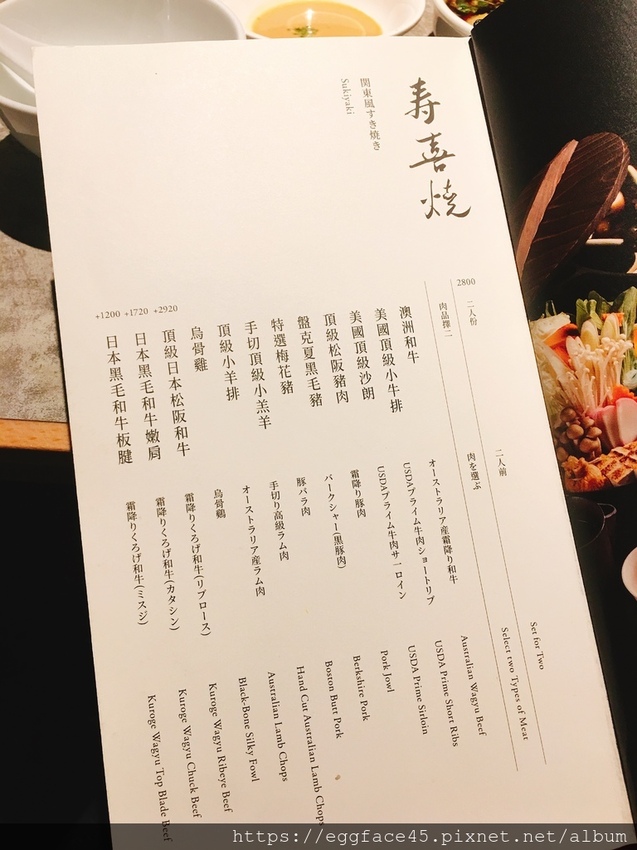 寿喜燒
関東風すき焼き
Sukiyaki
2800
二人份
二人前
Set for Two
肉品擇二
肉を選ぶ
Select two Types of Meat
澳洲和牛
オーストラリア産霜降り和牛
Australian Wagyu Beef
美國頂級小牛排
USDAプライム牛肉ショートリブ
USDA Prime Short Ribs
美國頂級沙朗
USDAプライム牛肉サーロイン
USDA Prime Sirloin
頂級松阪豬肉
霜降り豚肉
Pork Jowl
盤克夏黑毛豬
バークシャー(黒豚肉)
Berkshire Pork
特選梅花豬
豚バラ肉
Boston Butt Pork
手切頂級小羔羊
手切り高級ラム肉
Hand Cut Australian Lamb Chops
頂級小羊排
オーストラリア産ラム肉
Australian Lamb Chops
烏骨雞
烏骨鶏
Black-Bone Silky Fowl
+2920
頂級日本松阪和牛
霜降りくろげ和牛(リブロース)
Kuroge Wagyu Ribeye Beef
+1720
日本黑毛和牛嫩肩
霜降りくろげ和牛(カタシン)
Kuroge Wagyu Chuck Beef
+1200
日本黑毛和牛板腱
霜降りくろげ和牛(ミスジ)
Kuroge Wagyu Top Blade Beef
https://eggface45.pixnet.net/album